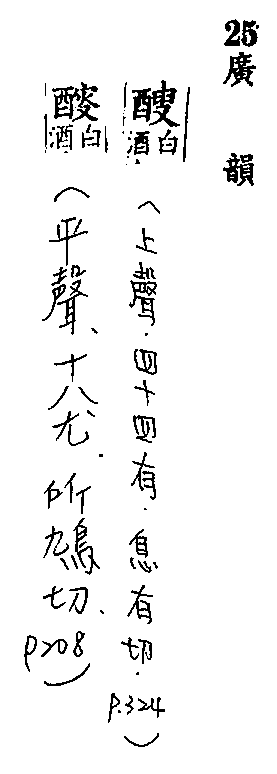 25廣韻
醙白酒(上聲.四十四有.息有切.P.324)
醙白酒(平聲、十八尤.所鳩切、P208)